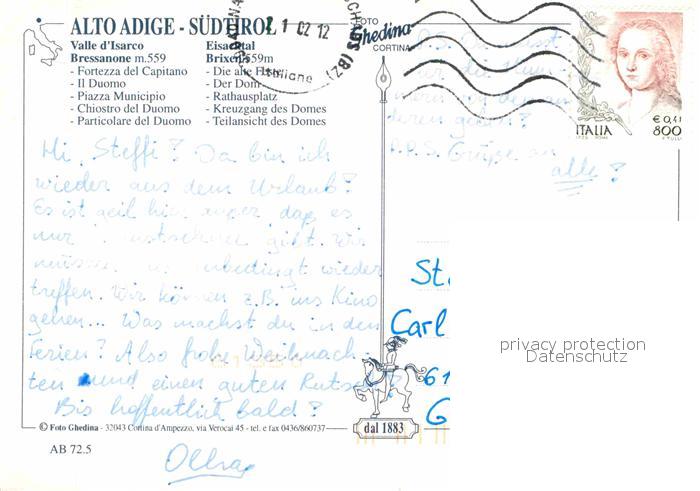 ALTO ADIGE - SÜDTIROL
Valle d'Isarco
Bressanone m.559
- Fortezza del Capitano
- Il Duomo
- Piazza Municipio
- Chiostro del Duomo
- Particolare del Duomo
Eisacktal
Brixen 559m
- Die alte
- Der Dom
- Rathausplatz
- Kreuzgang des Domes
- Teilansicht des Domes
1 02 12
(BZ)
FOTO
Ghedina
CORTINA
ITALIA
€ 0,41
800
P.S.
deren
P.P.S. Grüße an
alle?
Hi, Steffi? Da bin ich
wieder aus dem Urlaub?
Es ist geil hier, außer daß es
nur gibt. Wir
müssen unbedingt wieder
treffen. Wir können z.B. ins Kino
gehen... Was machst du in den
Ferien? Also frohe Weihnach-
ten und einen guten Rutsch?
Bis hoffentlich bald?
St
Carl
61
G
privacy protection
Datenschutz
dal 1883
© Foto Ghedina - 32043 Cortina d'Ampezzo, via Verocai 45 - tel. e fax 0436/860737
AB 72.5